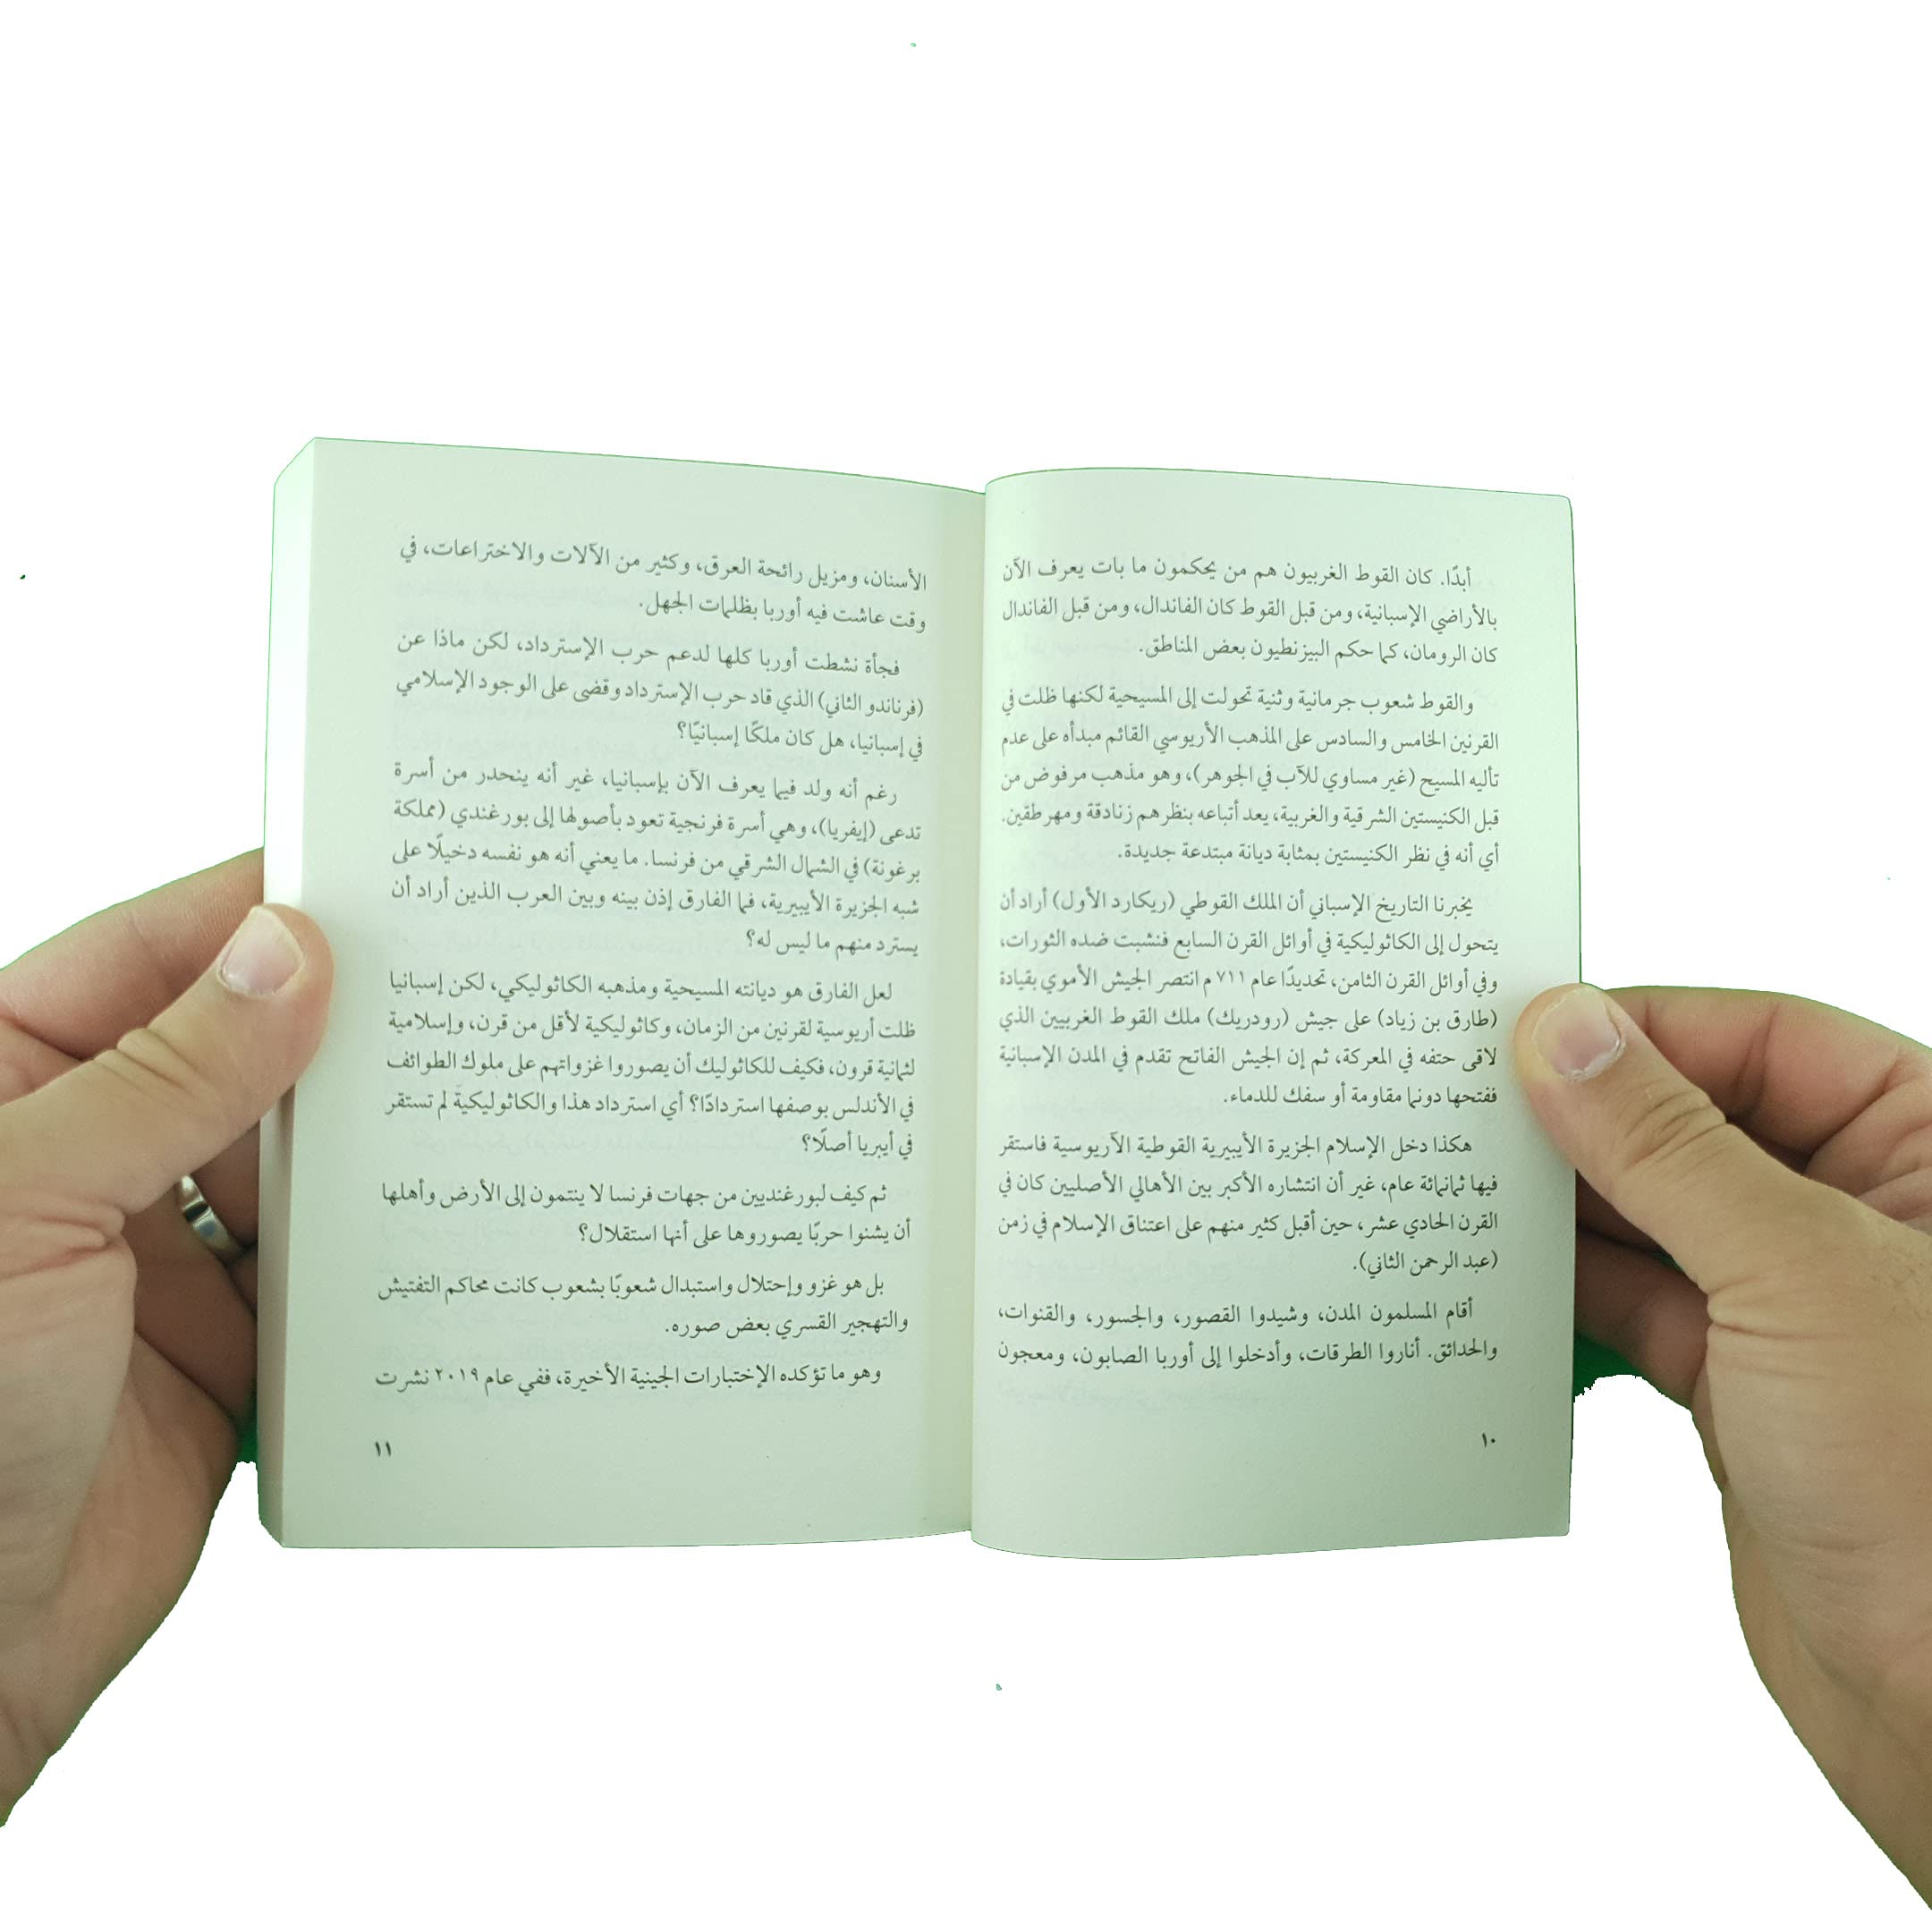 أبدًا. كان القوط الغربيون هم من يحكمون ما بات يعرف الآن
بالأراضي الإسبانية، ومن قبل القوط كان الفاندال، ومن قبل الفاندال
كان الرومان، كما حكم البيزنطيون بعض المناطق.
والقوط شعوب جرمانية وثنية تحولت إلى المسيحية لكنها ظلت في
القرنين الخامس والسادس على المذهب الأريوسي القائم مبدأه على عدم
تأليه المسيح (غير مساوي للآب في الجوهر)، وهو مذهب مرفوض من
قبل الكنيستين الشرقية والغربية، يعد أتباعه بنظرهم زنادقة ومهرطقين.
أي أنه في نظر الكنيستين بمثابة ديانة مبتدعة جديدة.
يخبرنا التاريخ الإسباني أن الملك القوطي (ريكارد الأول) أراد أن
يتحول إلى الكاثوليكية في أوائل القرن السابع فنشبت ضده الثورات،
وفي أوائل القرن الثامن، تحديدًا عام ٧١١ م انتصر الجيش الأموي بقيادة
(طارق بن زياد) على جيش (رودريك) ملك القوط الغربيين الذي
لاقى حتفه في المعركة، ثم إن الجيش الفاتح تقدم في المدن الإسبانية
ففتحها دونما مقاومة أو سفك للدماء.
هكذا دخل الإسلام الجزيرة الأيبيرية القوطية الآريوسية فاستقر
فيها ثمانمائة عام، غير أن انتشاره الأكبر بين الأهالي الأصليين كان في
القرن الحادي عشر، حين أقبل كثير منهم على اعتناق الإسلام في زمن
(عبد الرحمن الثاني).
أقام المسلمون المدن، وشيدوا القصور، والجسور، والقنوات،
والحدائق. أناروا الطرقات، وأدخلوا إلى أوربا الصابون، ومعجون
١٠
الأسنان، ومزيل رائحة العرق، وكثير من الآلات والاختراعات، في
وقت عاشت فيه أوربا بظلمات الجهل.
فجأة نشطت أوربا كلها لدعم حرب الإسترداد، لكن ماذا عن
(فرناندو الثاني) الذي قاد حرب الإسترداد وقضى على الوجود الإسلامي
في إسبانيا، هل كان ملكًا إسبانيًا؟
رغم أنه ولد فيما يعرف الآن بإسبانيا، غير أنه ينحدر من أسرة
تدعى (إيفريا)، وهي أسرة فرنجية تعود بأصولها إلى بورغندي (مملكة
برغونة) في الشمال الشرقي من فرنسا. ما يعني أنه هو نفسه دخيلًا على
شبه الجزيرة الأيبيرية، فما الفارق إذن بينه وبين العرب الذين أراد أن
يسترد منهم ما ليس له؟
لعل الفارق هو ديانته المسيحية ومذهبه الكاثوليكي، لكن إسبانيا
ظلت أريوسية لقرنين من الزمان، وكاثوليكية لأقل من قرن، وإسلامية
لثمانية قرون، فكيف للكاثوليك أن يصوروا غزواتهم على ملوك الطوائف
في الأندلس بوصفها استردادًا؟ أي استرداد هذا والكاثوليكية لم تستقر
في أيبريا أصلًا؟
ثم كيف لبورغنديين من جهات فرنسا لا ينتمون إلى الأرض وأهلها
أن يشنوا حربًا يصوروها على أنها استقلال؟
بل هو غزو وإحتلال واستبدال شعوبًا بشعوب كانت محاكم التفتيش
والتهجير القسري بعض صوره.
وهو ما تؤكده الإختبارات الجينية الأخيرة، ففي عام ٢٠١٩ نشرت
١١